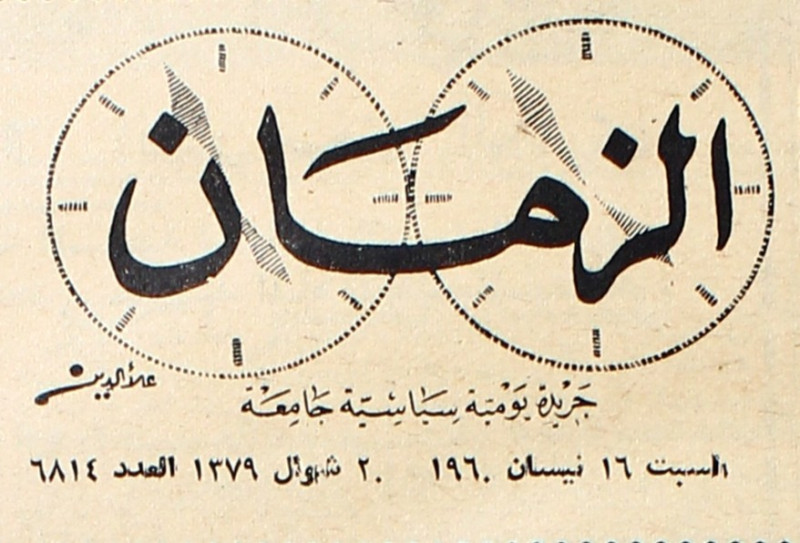 الزمان
علاء الدين
جَريدة يَوميّة سِيَاسِيّة جَامِعَة
السبت ١٦ نيسان ١٩٦٠ ٢٠ شوال ١٣٧٩ العدد ٦٨١٤